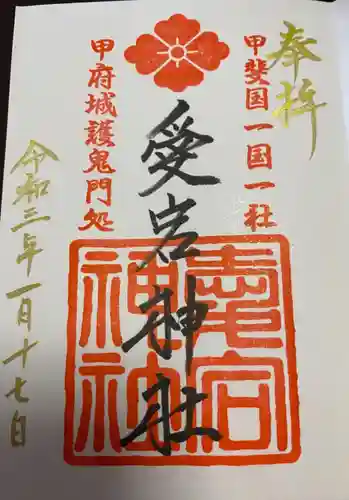 奉拝
甲斐国一国一社
愛宕神社
愛宕神社
甲府城護鬼門処
令和三年一月十七日